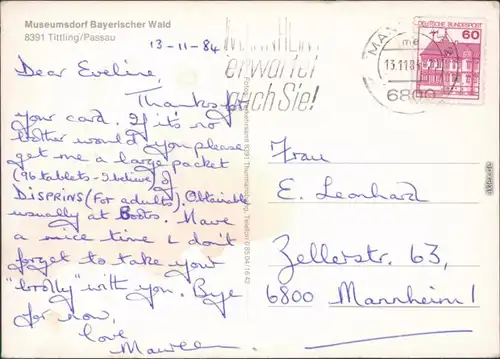 Museumsdorf Bayerischer Wald
8391 Tittling/Passau
13-11-84
Dear Eveline,
Thanks for
your card. If it's no
bother would you please
get me a large packet
(96 tablets - ) of
DISPRINS (for adults). Obtainable
usually at Boots. Have
a nice time & don't
forget to take your
"brolly" with you. Bye
for now,
love
Maureen
erwartet
auch Sie!
DEUTSCHE BUNDESPOST
60
13.11.84
6800
Frau
E. Leonhard
Zellerstr. 63,
6800 Mannheim 1